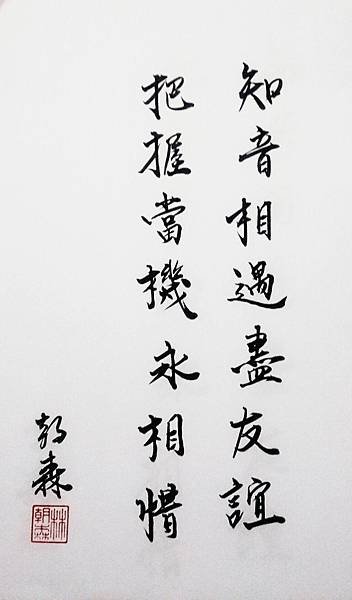 知音相遇盡友誼
把握當機永相惜
朝森
林朝森